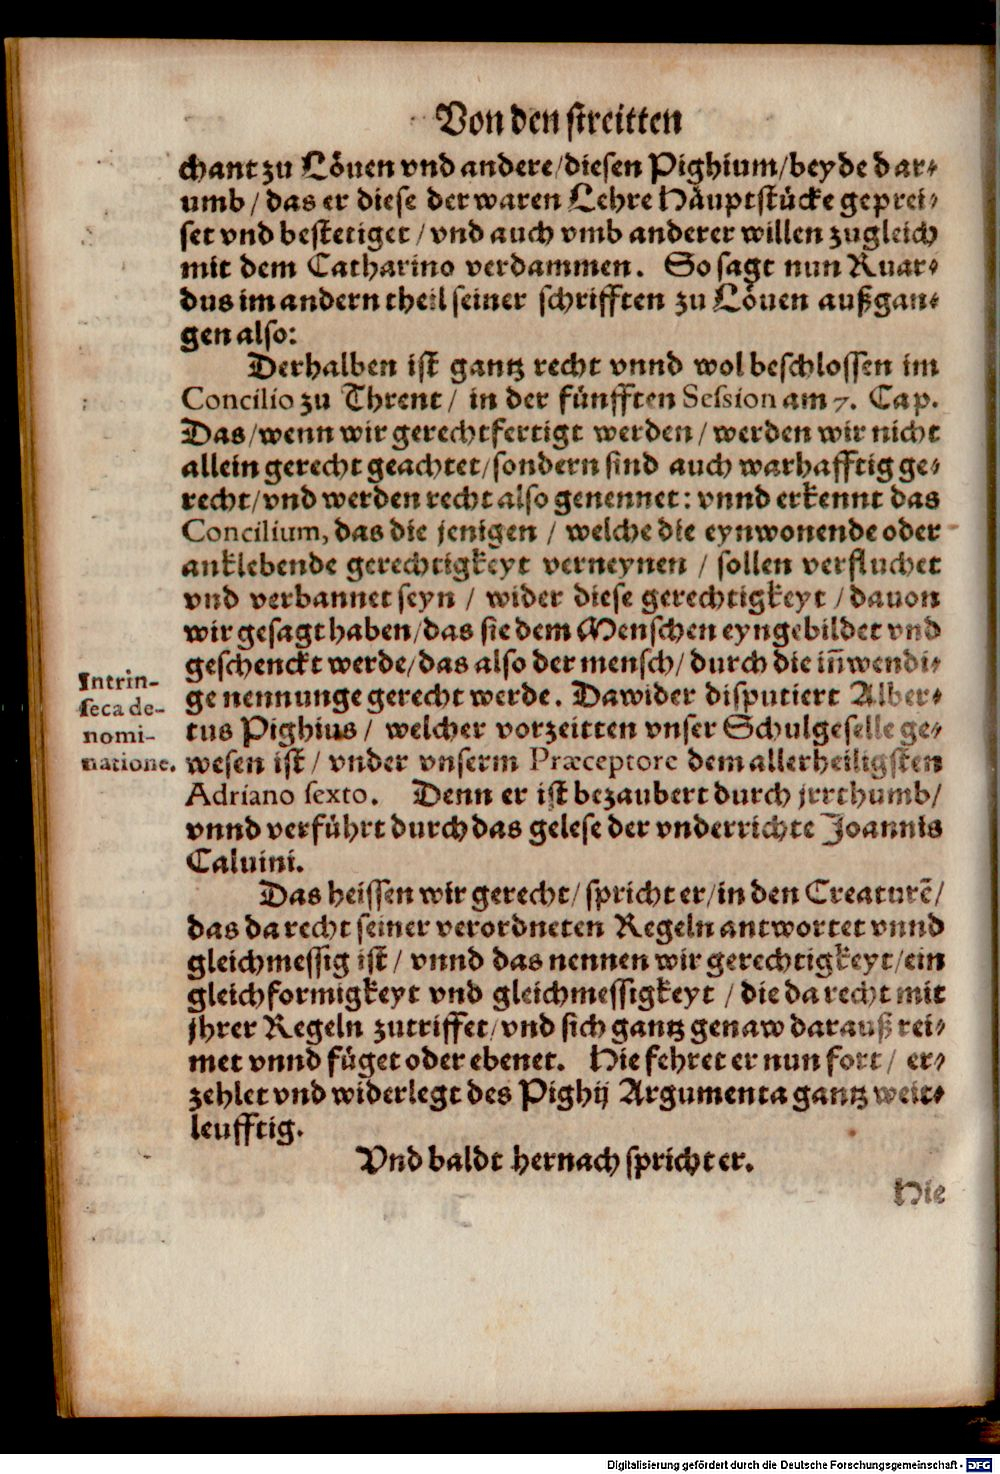 Von den streitten
chant zu Löuen vnd andere/diesen Pighium/beyde dar⸗
umb/das er diese der waren Lehre Häuptstücke geprei⸗
set vnd bestetiget/vnd auch vmb anderer willen zugleich
mit dem Catharino verdammen. So sagt nun Ruar⸗
dus im andern theil seiner schrifften zu Löuen außgan⸗
gen also:
Derhalben ist gantz recht vnnd wol beschlossen im
Concilio zu Thrent/ in der fünfften Session am 7. Cap.
Das/wenn wir gerechtfertigt werden/werden wir nicht
allein gerecht geachtet/sondern sind auch warhafftig ge⸗
recht/vnd werden recht also genennet: vnnd erkennt das
Concilium, das die jenigen / welche die eynwonende oder
anklebende gerechtigkeyt verneynen / sollen verfluchet
vnd verbannet seyn / wider diese gerechtigkeyt / dauon
wir gesagt haben/das sie dem Menschen eyngebildet vnd
geschenckt werde/das also der mensch/durch die iñwendi⸗
ge nennunge gerecht werde. Dawider disputiert Alber⸗
tus Pighius / welcher vorzeitten vnser Schulgeselle ge⸗
wesen ist / vnder vnserm Præceptore dem allerheiligsten
Adriano sexto. Denn er ist bezaubert durch jrrthumb/
vnnd verführt durch das gelese der vnderrichte Joannis
Caluini.
Intrin-
seca de-
nomi-
natione.
Das heissen wir gerecht/spricht er/in den Creaturẽ/
das da recht seiner verordneten Regeln antwortet vnnd
gleichmessig ist/ vnnd das nennen wir gerechtigkeyt/ein
gleichformigkeyt vnd gleichmessigkeyt /die da recht mit
jhrer Regeln zutriffet/vnd sich gantz genaw darauß rei⸗
met vnnd füget oder ebenet. Hie fehret er nun fort/ er⸗
zehlet vnd widerlegt des Pighij Argumenta gantz weit⸗
leufftig.
Vnd baldt hernach spricht er.
Hie
Digitalisierung gefördert durch die Deutsche Forschungsgemeinschaft - DFG